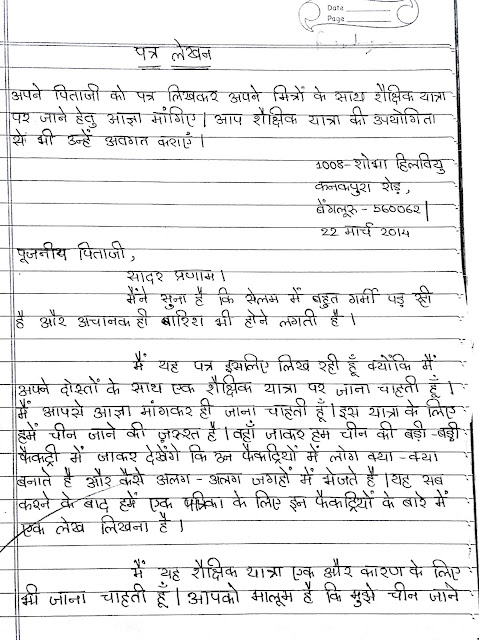 Date
Page
पत्र लेखन
अपने पिताजी को पत्र लिखकर अपने मित्रों के साथ शैक्षिक यात्रा
पर जाने हेतु आज्ञा मांगिए | आप शैक्षिक यात्रा की उपयोगिता
से भी उन्हें अवगत कराएँ |
1008-शोभा हिलवियु
कनकपुरा रोड़,
बैंगलूरु - 560062|
22 मार्च 2014
पूजनीय पिताजी,
सादर प्रणाम |
मैंने सुना है कि सेलम में बहुत गर्मी पड़ रही
है और अचानक ही बारिश भी होने लगती है |
मैं यह पत्र इसलिए लिख रही हूँ क्योंकि मैं
अपने दोस्तों के साथ एक शैक्षिक यात्रा पर जाना चाहती हूँ |
मैं आपसे आज्ञा मांगकर ही जाना चाहती हूँ | इस यात्रा के लिए
हमें चीन जाने की ज़रुरत है | वहाँ जाकर हम चीन की बड़ी-बड़ी
फैकट्री में जाकर देखेंगे कि उन फैकट्रियों में लोग क्या - क्या
बनाते है और कैसे अलग - अलग जगहों में भेजते है | यह सब
करने के बाद हमें एक पत्रिका के लिए इन फैकट्रियों के बारे में
एक लेख लिखना है |
मैं यह शैक्षिक यात्रा एक और कारण के लिए
भी जाना चाहती हूँ | आपको मालूम है कि मुझे चीन जाने